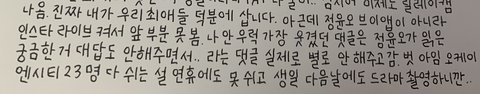 나음. 진짜 내가 우리 최애들 덕분에 삽니다. 아 근데 정윤오 브이앱이 아니라
인스타 라이브 켜서 앞 부분 못 봄. 나 안 우럭 가장 웃겼던 댓글은 정윤오가 읽은
궁금한 거 대답도 안해주면서.. 라는 댓글 실제로 별로 안 해주고 감. 벗 아임 오케이
엔시티 23명 다 쉬는 설 연휴에도 못 쉬고 생일 다음날에도 드라마 촬영하니깐..